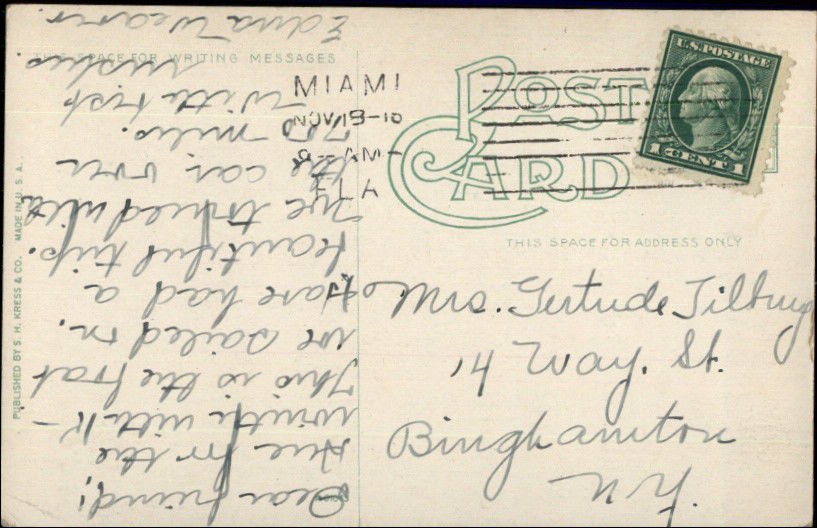 THIS SPACE FOR WRITING MESSAGES
POST
CARD
THIS SPACE FOR ADDRESS ONLY
U.S. POSTAGE
1 CENT 1
MIAMI
NOV 19-16
8 AM-
FLA
PUBLISHED BY S. H. KRESS & CO. MADE IN U. S. A.
Mrs. Gertrude Tilbury
14 Way. St.
Binghamton
N.Y.
Dear friend!
for the
with
This is the boat
we sailed in.
Have had a
beautiful trip.
We with
the car, over
700 miles.
With best
wishes
Edna Weaver